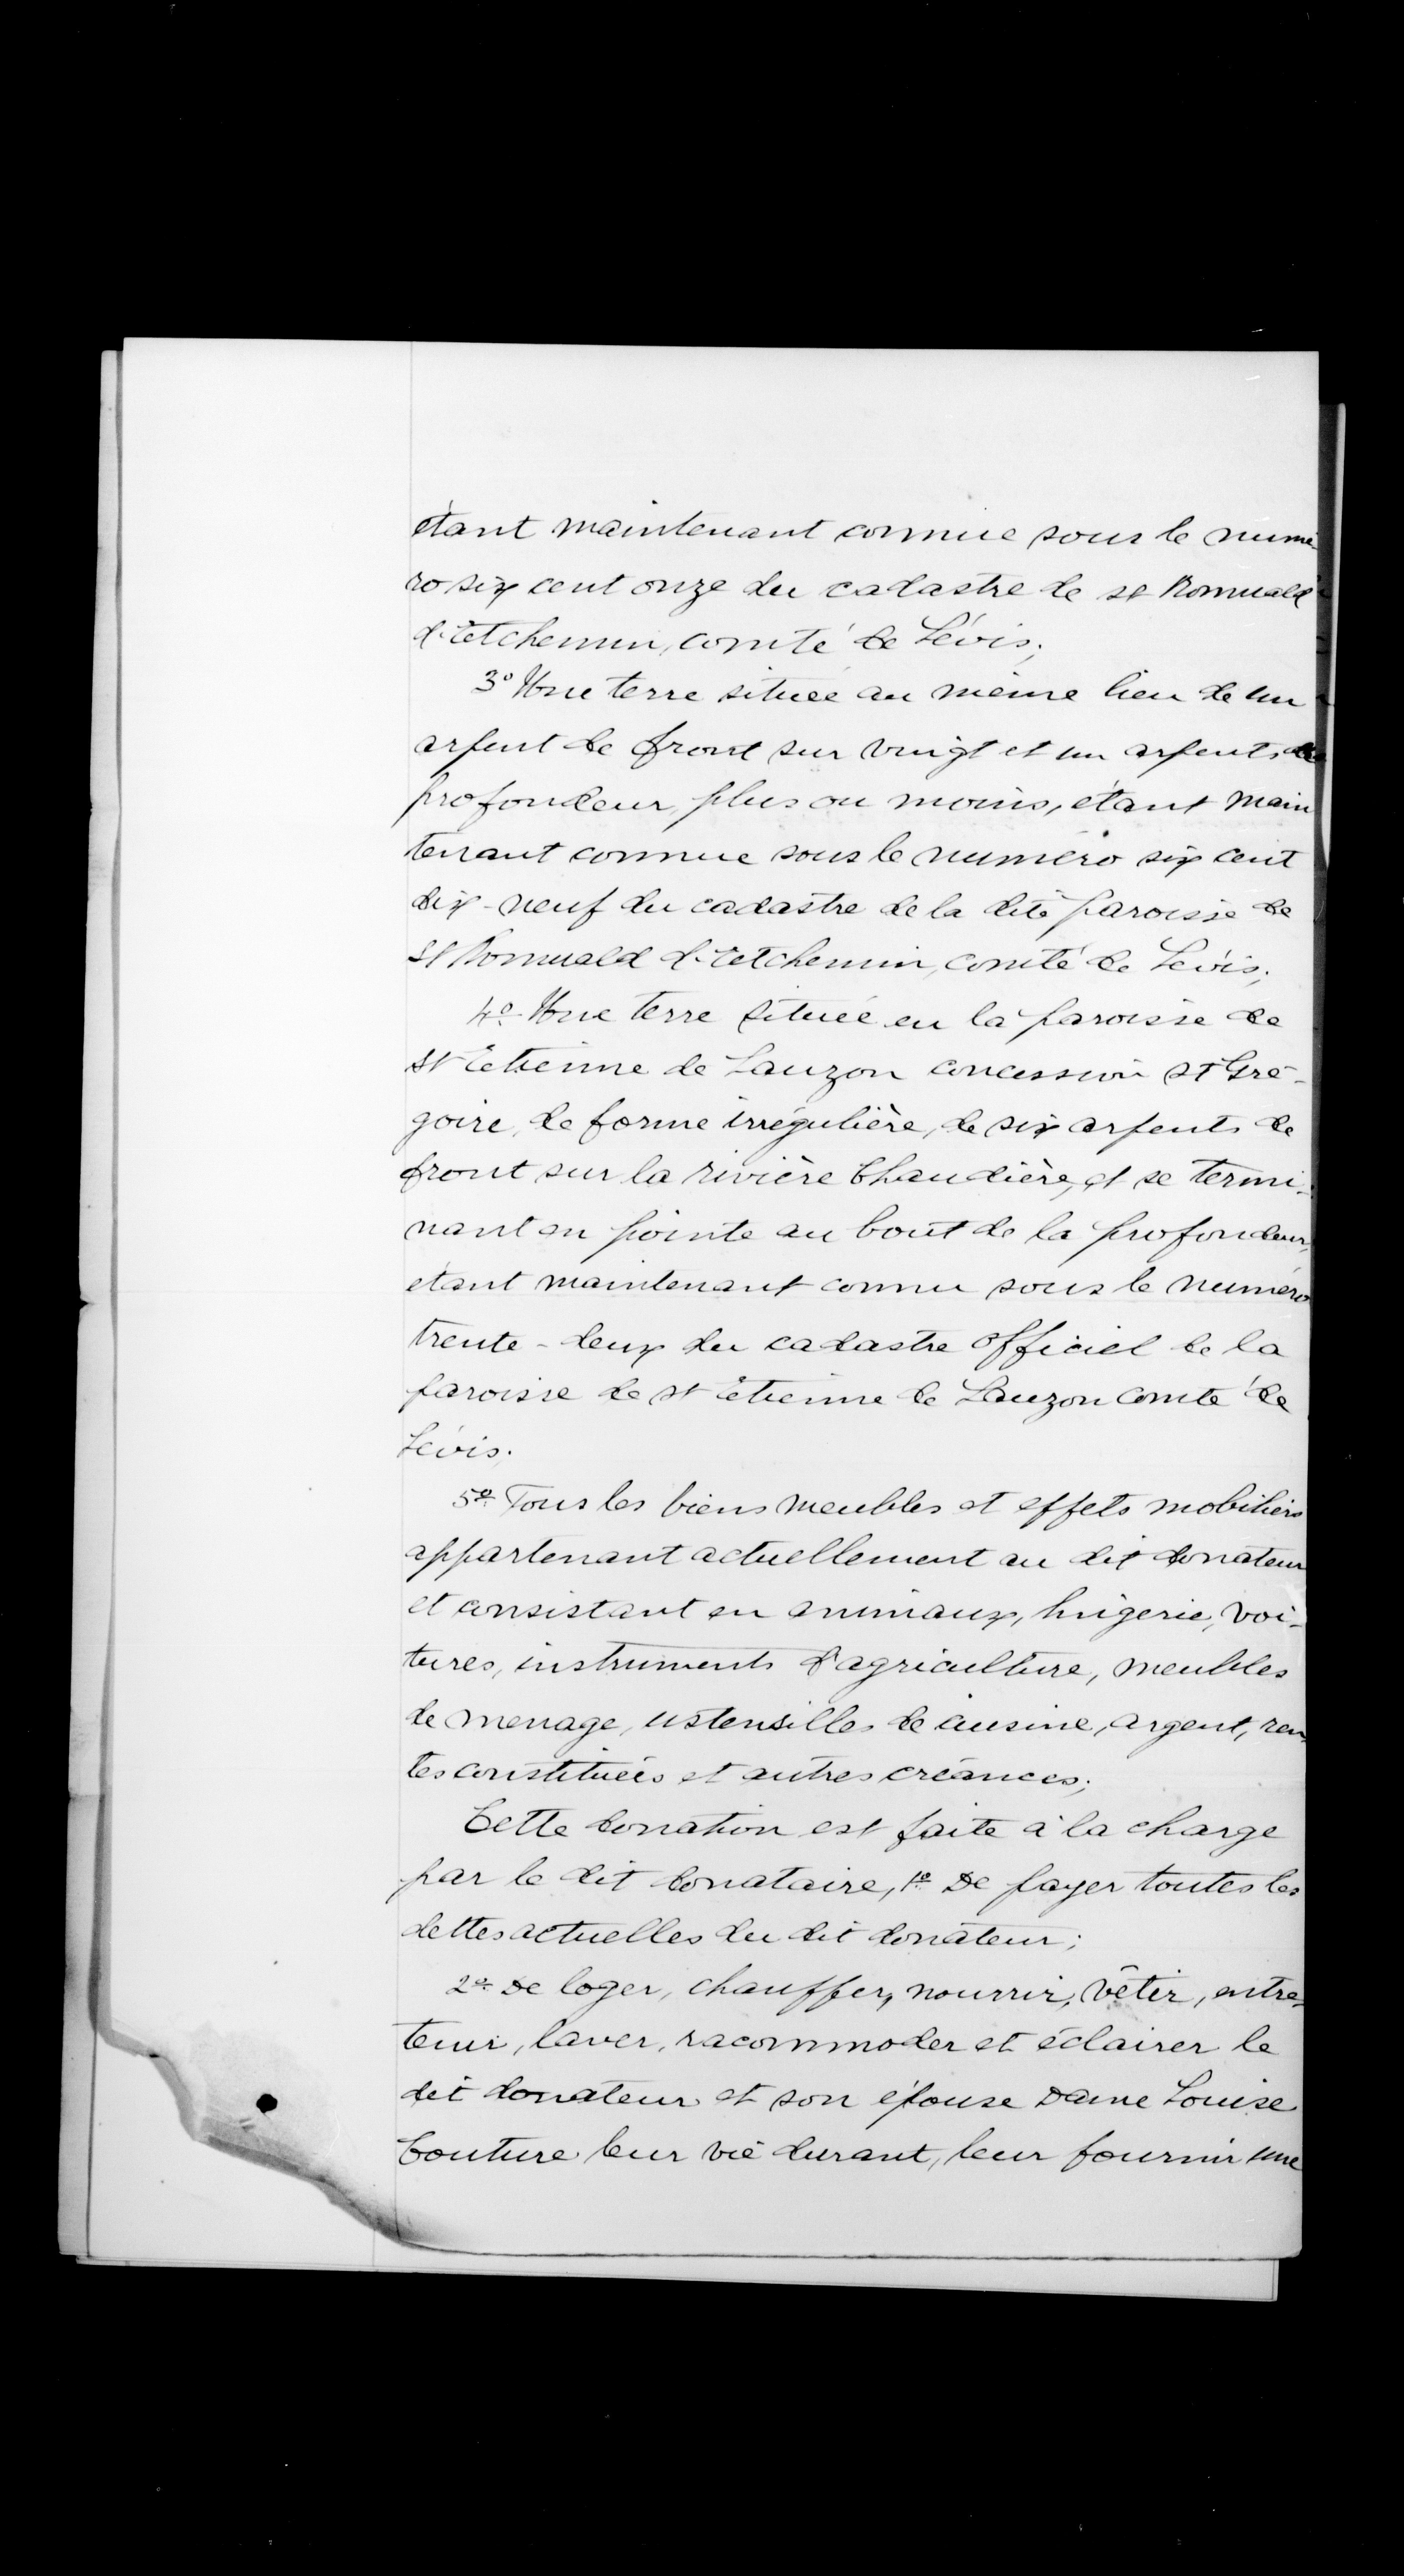 étant maintenant connue sous le numé
ro six cent onze du cadastre de St Romuald
d'Etchemin, comté de Lévis;
3º Une terre située au même lieu de un
arpent de front sur vingt et un arpents de
profondeur, plus ou moins, étant main
tenant connue sous le numéro six cent
dix-neuf du cadastre de la dite paroisse de
St Romuald d'Etchemin, comté de Lévis;
4º Une terre située en la paroisse de
St Etienne de Lauzon concession St Gré-
goire, de forme irrégulière, de six arpents de
front sur la rivière Chaudière, et se termi-
nant en pointe au bout de la profondeur,
étant maintenant connu sous le numéro
trente-deux du cadastre officiel de la
paroisse de St Etienne de Lauzon comté de
Lévis.
5º Tous les biens meubles et effets mobiliers
appartenant actuellement au dit donateur
et consistant en animaux, lingerie, voi-
tures, instruments d'agriculture, meubles
de menage, ustensilles de cuisine, argent, ren
tes constituées et autres créances;
Cette donation est faite à la charge
par le dit donataire, 1º De payer toutes les
dettes actuelles du dit donateur;
2º De loger, chauffer, nourrir, vêtir, entre-
tenir, laver, racommoder et éclairer le
dit donateur et son épouse Dame Louise
Couture leur vie durant, leur fournir une